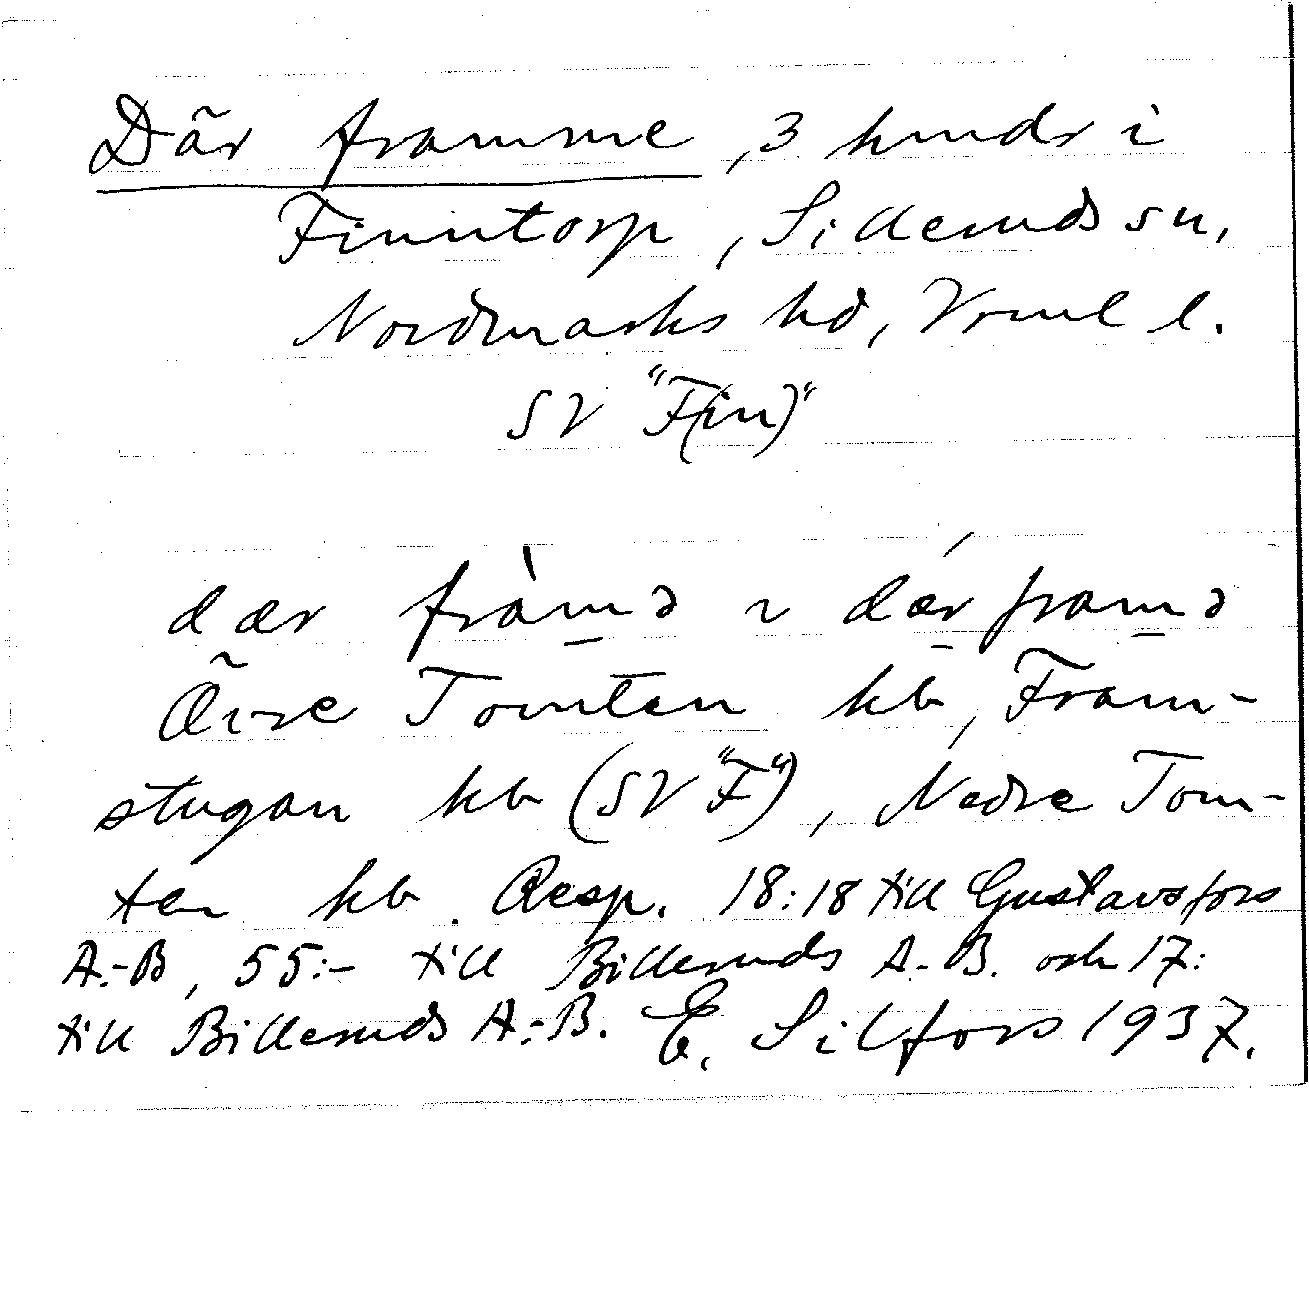 Där framme, 3 hmdr i
Finntorp, Sillerudssn,
Nordmarks hd, Vrml l.
SV "F(in)"
dær fràmə ~ dǽr framə
Övre Tomten hb, Fram-
stugan hb (SV "F"), Nedre Tom-
ten hb. Resp. 18:18 till Gustavsfors
A.-B, 55:- till Billeruds A.-B. och 17:
till Billeruds A.-B. E. Silfors 1937.